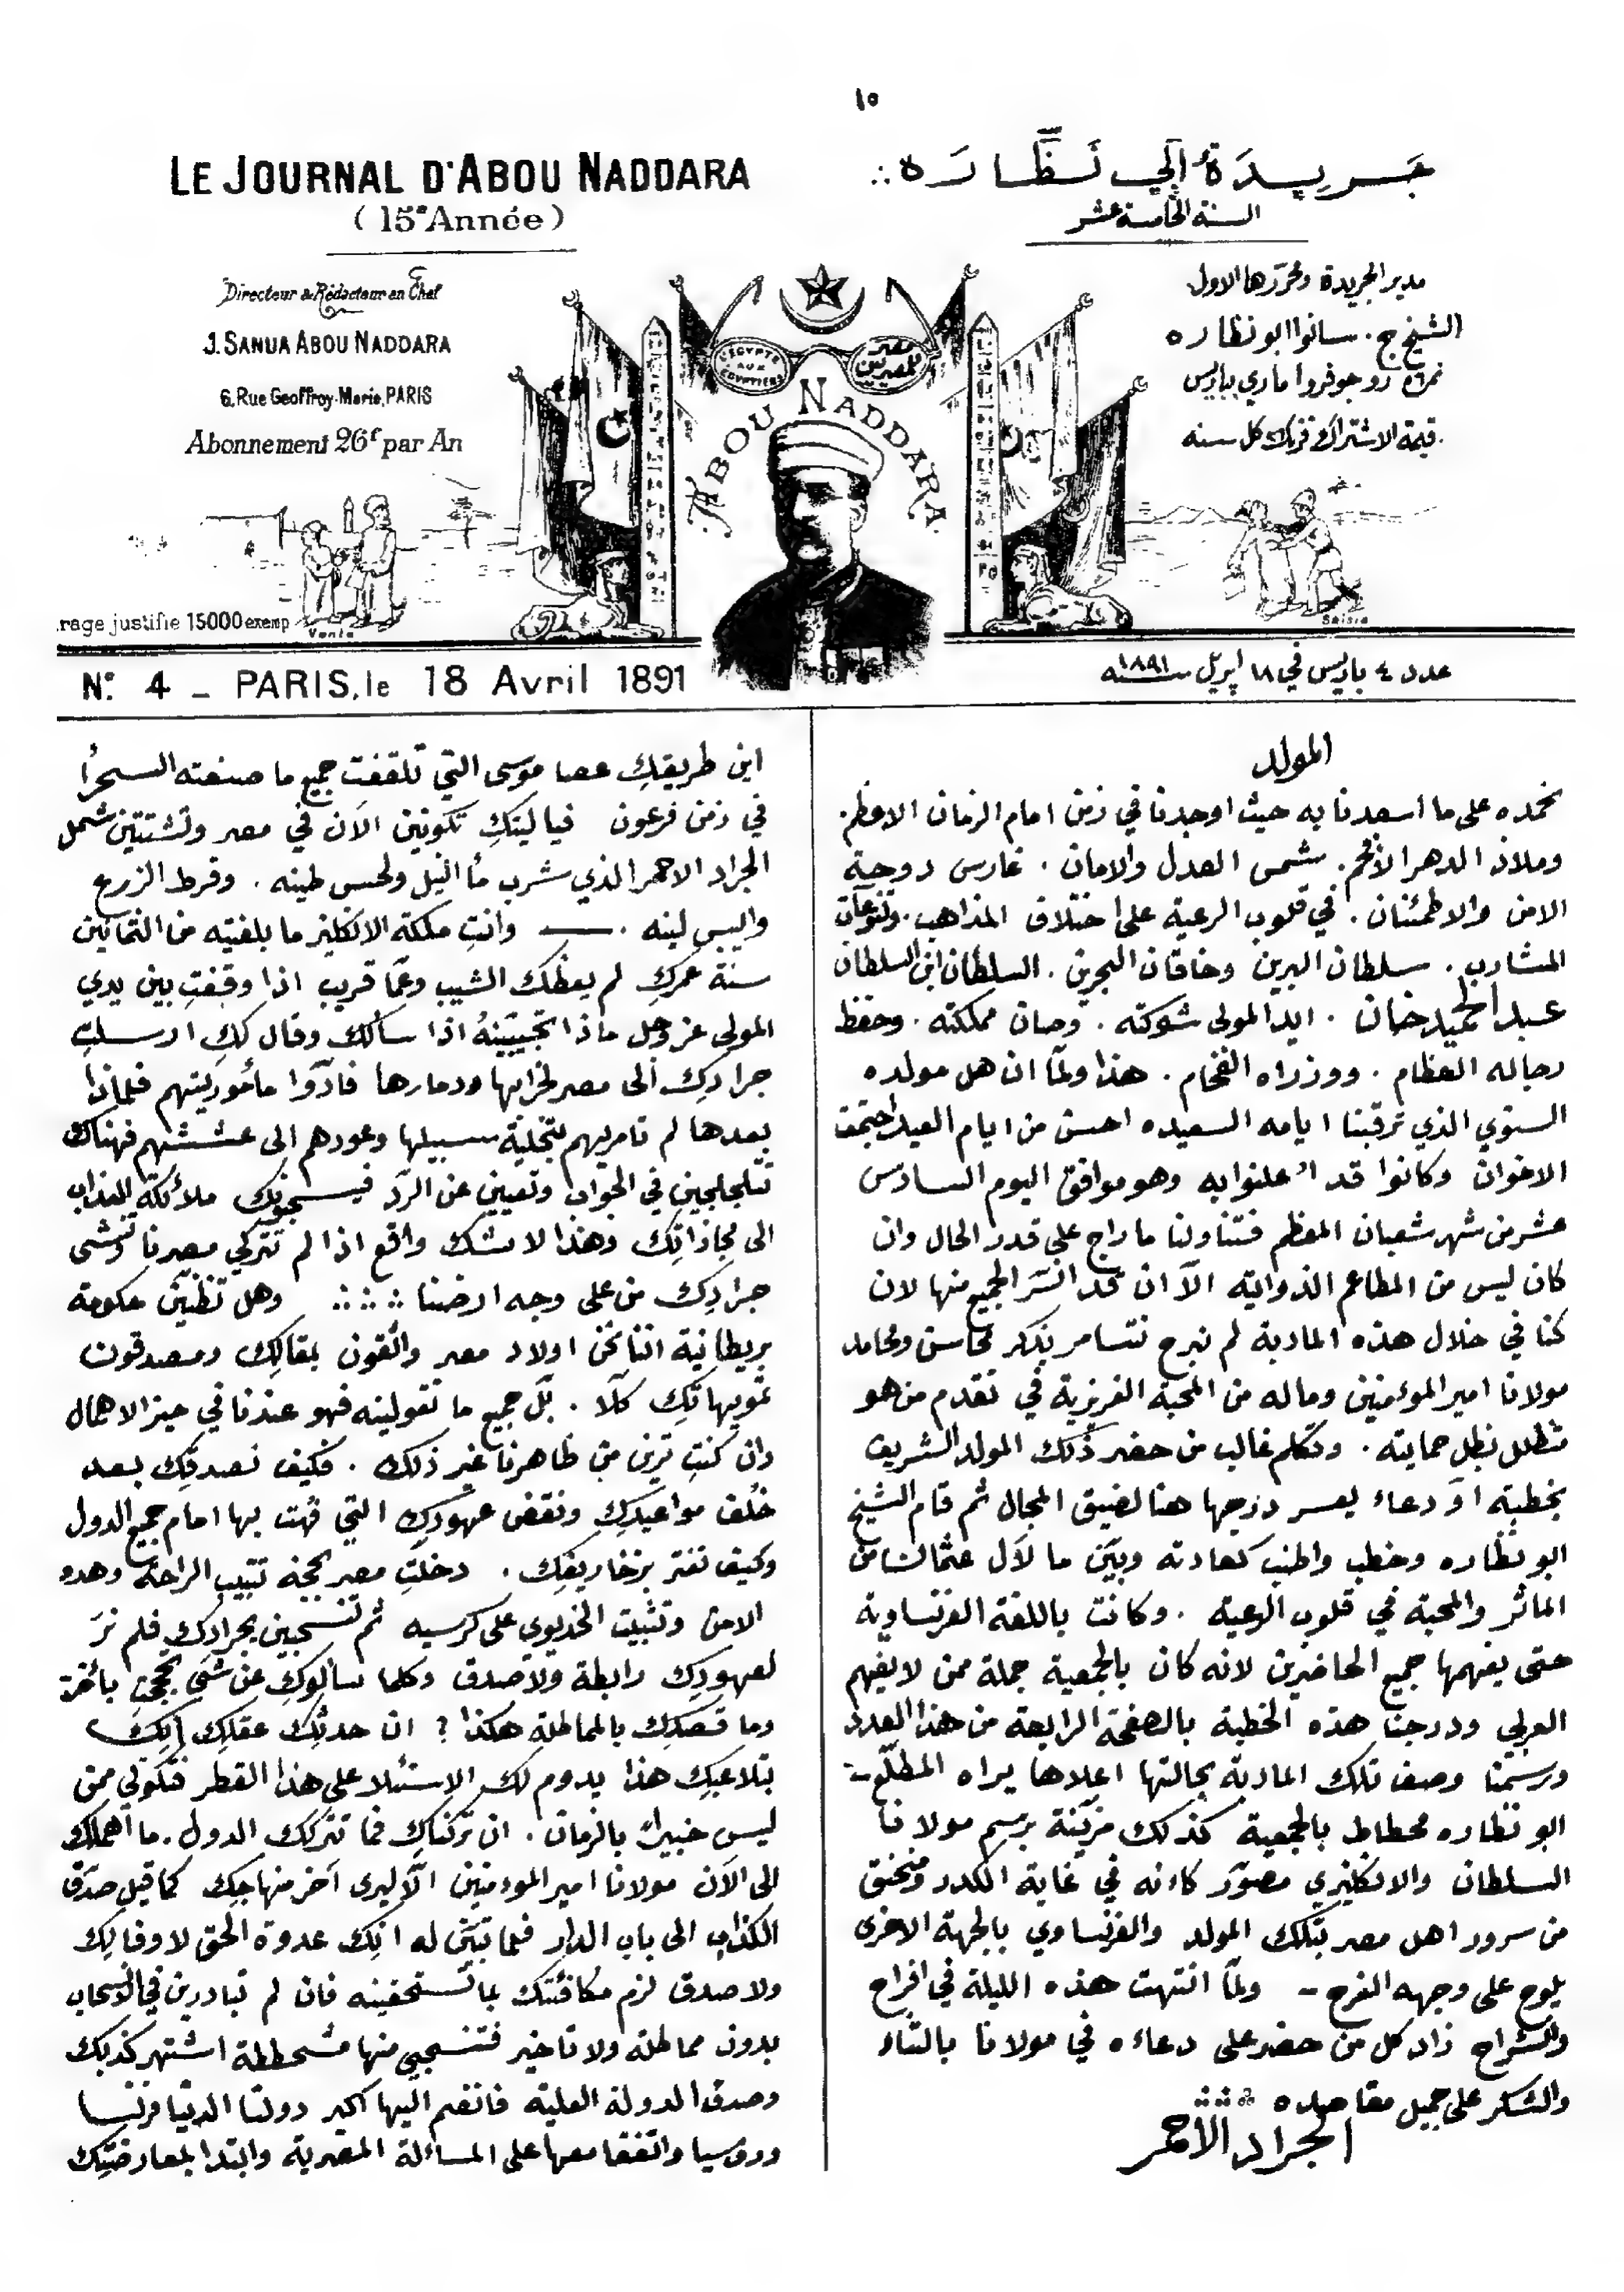 ١٥
LE JOURNAL D'ABOU NADDARA
(15e Année)
Directeur & Rédacteur en Chef
J. SANUA ABOU NADDARA
6, Rue Geoffroy-Marie, PARIS
Abonnement 26f par An
جَريدَة أبي نَظَّارَة
السنة الخامسة عشر
مدير الجريدة ومحررها الاول
الشيخ ج. سانوا ابو نظاره
نمرة ٦ رو جوفروا ماري بباريس
قيمة الاشتراك فرنك كل سنه
L'EGYPTE AUX EGYPTIENS
مصر للمصريين
ABOU NADDARA
rage justifie 15000 exemp
Vente
Saisie
N.º 4 _ PARIS, le 18 Avril 1891
عدد ٤ باريس في ١٨ اپريل سنه ١٨٩١
المولد
نحمده على ما اسعدنا به حيث اوجدنا في زمن امام الزمان الاعظم.
وملاذ الدهر الافخم. شمس العدل والامان. غارس دوحة
الامن والاطمئنان. في قلوب الرعية على اختلاف المذاهب. وتنوعات
المشارب. سلطان البرين وخاقان البحرين. السلطان ابن السلطان
عبد الحميد خان. ايد المولى شوكته. وصان مملكته. وحفظ
رجاله العظام. ووزراه الفخام. هذا ولمّا ان هل مولده
السنوي الذي ترقبنا ايامه السعيده احسن من ايام العيد اجتمعت
الاخوان وكانوا قد اعلنوا به وهو موافق اليوم السادس
عشر من شهر شعبان المعظم فتناولنا ما راج على قدر الحال وان
كان ليس من المطاعم الذواتيه الاّ ان قد انسَر الجميع منها لان
كنا في خلال هذه المادبة لم نبرح نتسامر بذكر محاسن ومحامد
مولانا امير المومنين وماله من المحبة الغريزية في تقدم من هو
متظلل بظل حمايته. وتكلم غالب من حضر ذلك المولد الشريف
بخطبته او دعاء يعسر درجها هنا لضيق المجال ثم قام الشيخ
ابو نظاره وخطب واطنب كعادته وبيّن ما لآل عثمان من
الماثر والمحبة في قلوب الرعية. وكانت باللغة الفرنساوية
حتى يفهمها جميع الحاضرين لانه كان بالجمعية جملة ممن لا يفهم
العربي ودرجنا هذه الخطبة بالصفحة الرابعة من هذا العدد
ورسمنا وصف تلك المادبة بحالتها اعلاها يراه المطلّع -
ابو نظاره محطاط بالجمعية كذلك مزيّنة برسم مولانا
السلطان والانكليزي مصوّر كانه في غاية الكدر ومنخنق
من سرور اهل مصر بتلك المولد والفرنساوي بالجهة الاخرى
يلوح على وجهه الفرح - ولمّا انتهت هذه الليلة في افراح
وانشراح زاد كل من حضر على دعاءه في مولانا بالثناء
والشكر على جميل مقاصده
الجراد الاحمر
اين طريقكِ عصا موسى التي تلقفت جميع ما صنعته السحرا
في زمن فرعون فيا ليتكِ تكونين الآن في مصر وتشتتين شمل
الجراد الاحمر الذي شرب مأ النيل ولحس طينه. وقرط الزرع
واليبس لينه. ــــ وانتِ ملكة الانكليز ما بلغتيه من الثمانين
سنة عمركِ لم يعظك الشيب وعمّا قريب اذا وقفتِ بين يدي
المولى عز وجل ماذا تجيبينهُ اذا سألك وقال لكِ ارسلتِ
جرادكِ الى مصر لخرابها ودمارها فادّوا مأموريتهم فلماذا
بعدها لم تامريهم بتخلية سبيلها وعودهم الى عششهم فهناك
تتلجلجين في الجواب وتعيين عن الرّد فيسحبونك ملائكة العذاب
الى مجازاتِك وهذا لا شك واقع اذا لم تتركي مصرنا
جرادك من على وجه ارضنا وهل تظنين حكومة
بريطانية اننا نحن اولاد مصر واثقون بمقالكِ ومصدقون
تمويهاتكِ كلّا. بل جميع ما تقولينه فهو عندنا في حيز الاهمال
وان كنتِ ترين من ظاهرنا غير ذلك. فكيف نصدقكِ بعد
خُلف مواعيدكِ ونقض عهودكِ التي قُمت بها امام جميع الدول
وكيف نغتر بزخاريفكِ. دخلتِ مصر بحجة تتبيب الراحة وهدو
الامن وتثبيت الخديوي على كرسيه ثم تنسحبين بجرادكِ فلم نرَ
لعهودكِ رابطة ولا صدق وكلما سألوكِ عن شئ تحججتِ بأخر
وما قصدكِ بالمماطلة هكذا؟ ان حدثكِ عقلكِ انكِ
بتلاعبكِ هذا يدوم لك الاستئلا على هذا القطر فتكوني ممن
ليس خبيرًا بالزمان. ان تركناكِ فما تتركك الدول. ما اهملك
الى الآن مولانا امير المومنين الاّ ليرى آخر منهاجكِ كما قيل صدّق
الكذاب الى باب الدار فلما تبيّن له انكِ عدوة الحق لا وفا لكِ
ولا صدق لزم مكافئتك بما تستحقينه فان لم تبادرين في الانسحاب
بدون مماطلة ولا تاخير فتنسحبي منها مشحططة اشتهر كذبك
وصدق الدولة العلية فانضم اليها اكبر دولتا الدنيا فرنسا
وروسيا واتفقا معها على المسالة المصرية وابتدا بمعارضتكِ